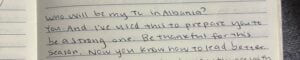 Who will be my TL in Albania?
You. And I've used this to prepare you to
be a strong one. Be thankful for this
season. Now you know how to lead better.